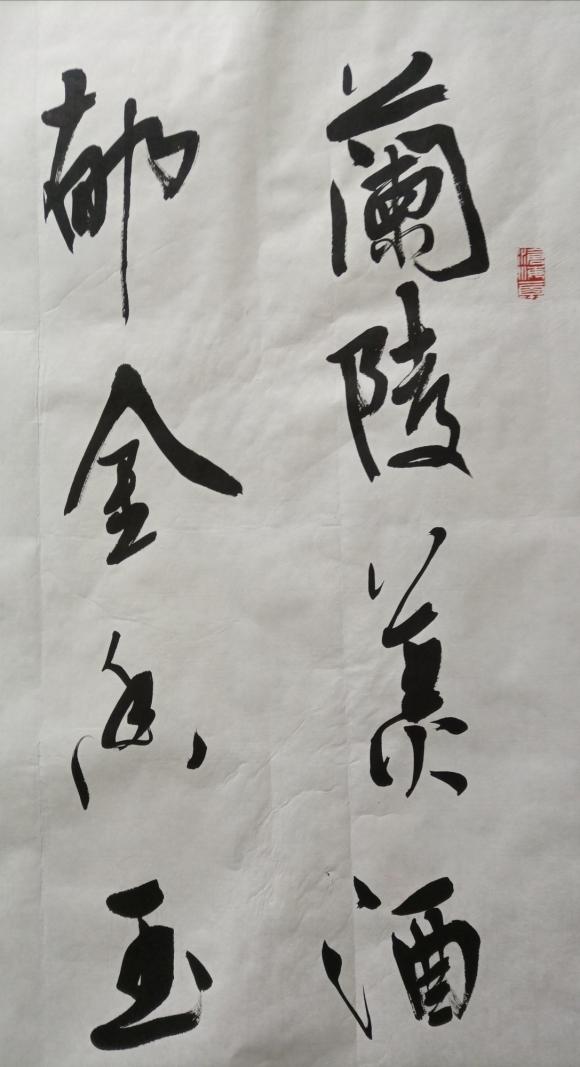 蘭陵美酒
郁金香玉